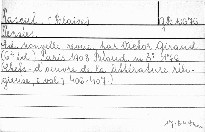 Pascal (Blaise)
Pensées.
Éd. nouvelle revue par Victor Giraud.
(6e éd.) Paris 1908 Bloud. in 8°
(Chefs-d'œuvre de la littérature reli-
gieuse, 2 vol. 406-407.)